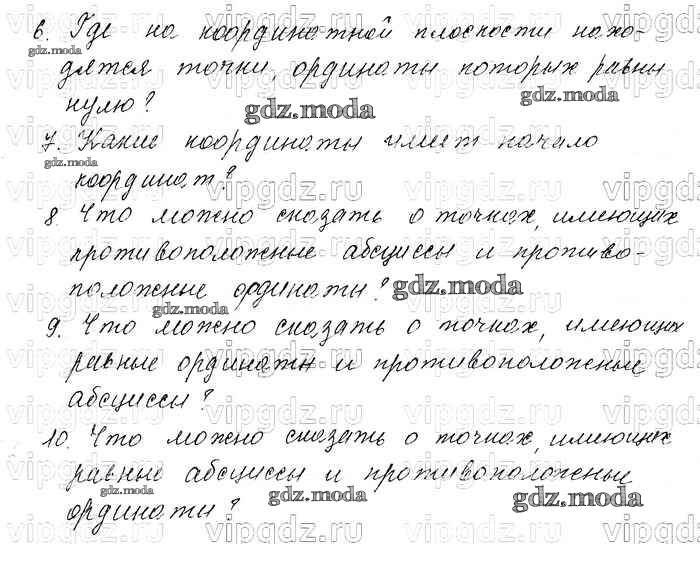 6. Где на координатной плоскости нахо-
дятся точки, ординаты которых равны
нулю?
7. Какие координаты имеет начало
координат?
8. Что можно сказать о точках, имеющих
противоположные абсциссы и противо-
положные ординаты?
9. Что можно сказать о точках, имеющих
равные ординаты и противоположные
абсциссы?
10. Что можно сказать о точках, имеющих
равные абсциссы и противоположные
ординаты?
gdz.moda
vipgdz.ru